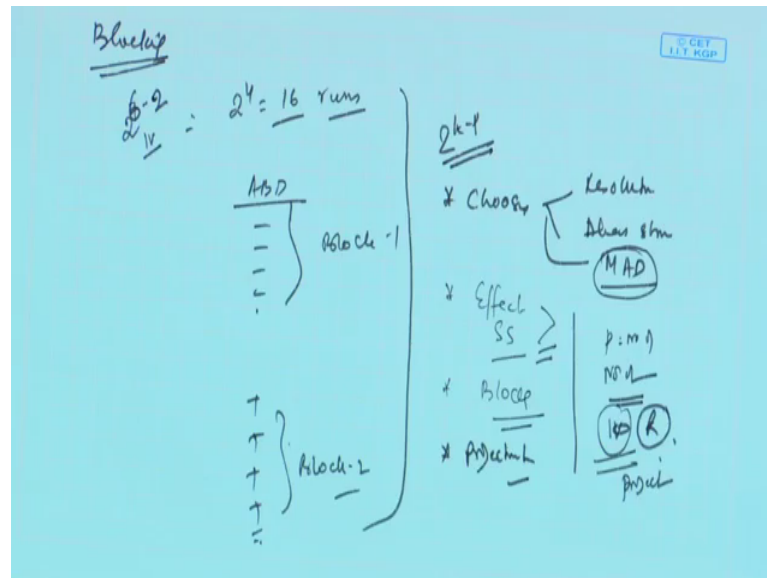 Blocking
© CET
I.I.T. KGP
2^{6-2}_{IV} = 2^4 = 16 runs
ABD
-
-
-
-
.
Block-1
+
+
+
+
Block-2
2^{k-p}
* Choosing
Resolution
MAD
* Effect
SS
* Blocking
* Projection
R
Project